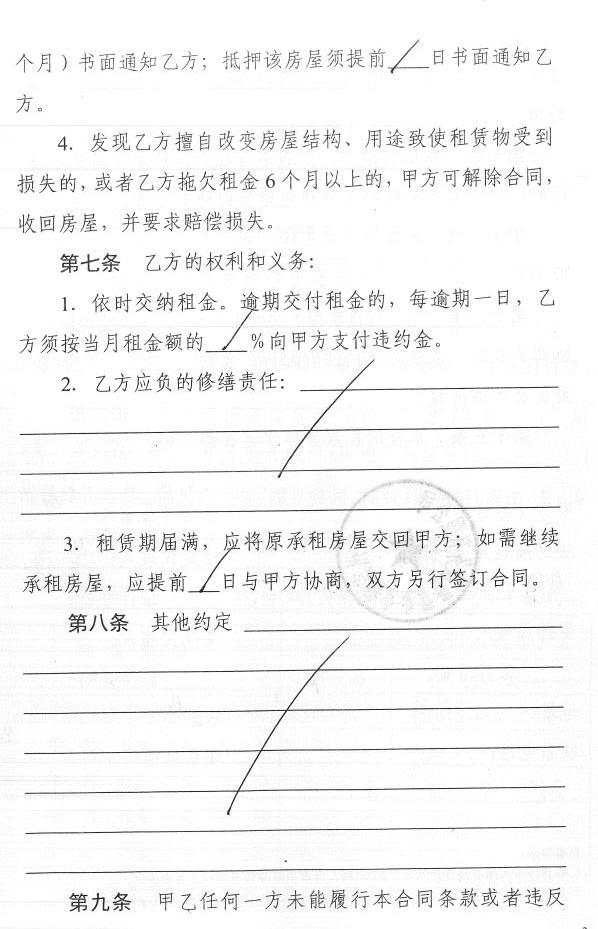 个月）书面通知乙方；抵押该房屋须提前/日书面通知乙
方。
4. 发现乙方擅自改变房屋结构、用途致使租赁物受到
损失的，或者乙方拖欠租金6个月以上的，甲方可解除合同，
收回房屋，并要求赔偿损失。
第七条 乙方的权利和义务：
1. 依时交纳租金。逾期交付租金的，每逾期一日，乙
方须按当月租金额的/%向甲方支付违约金。
2. 乙方应负的修缮责任：/
3. 租赁期届满，应将原承租房屋交回甲方；如需继续
承租房屋，应提前/日与甲方协商，双方另行签订合同。
第八条 其他约定/
第九条 甲乙任何一方未能履行本合同条款或者违反